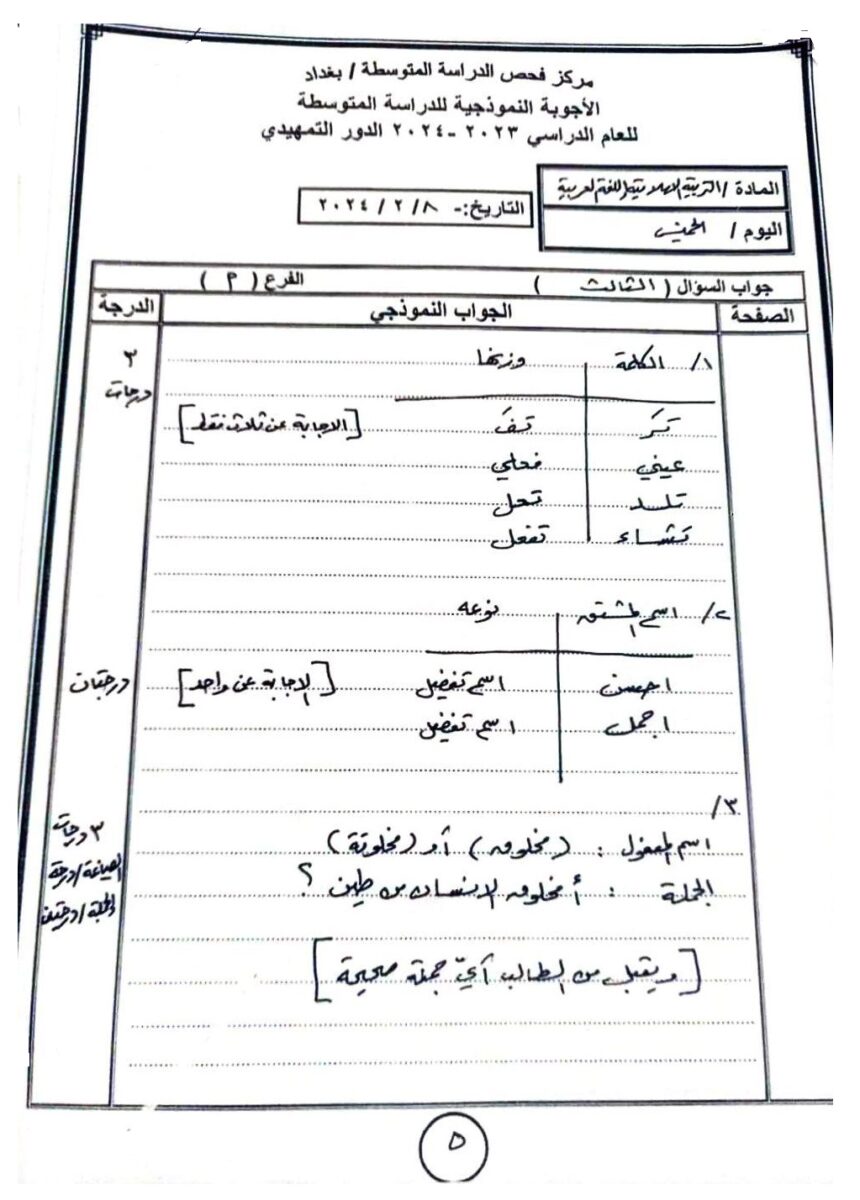 مركز فحص الدراسة المتوسطة / بغداد
الأجوبة النموذجية للدراسة المتوسطة
للعام الدراسي ٢٠٢٣ -٢٠٢٤ الدور التمهيدي
المادة / التربية الاسلامية واللغة العربية
اليوم / الخميس
التاريخ:- ٨ / ٢ / ٢٠٢٤
جواب السؤال ( الثالث ) الفرع ( م )
الصفحة الجواب النموذجي الدرجة
١/ الكلمة وزنها ٣ درجات
تَرَ تَفَ [الاجابة عن ثلاث فقط]
عيني فعلي
تلد تعل
تشاء تفعل
٢/ اسم المشتق نوعه
احسن اسم تفضيل [الاجابة عن واحد] درجتان
اجمل اسم تفضيل
٣/
اسم المفعول : (مخلوق) أو (مخلوقة) ٣ درجات
الجملة : أمخلوق الانسان من طين ؟ الصياغة/درجة
والجملة/درجتين
[ويقبل من الطالب أيّ جملة صحيحة]
٥